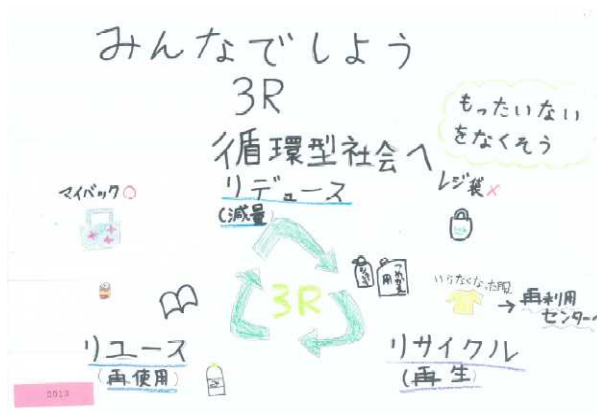 みんなでしよう
3R
循環型社会へ
もったいない
をなくそう
マイバック○
リデュース
(減量)
レジ袋×
3R
つめかえ
用
いらなくなった服
→再利用
センターへ
リユース
(再使用)
リサイクル
(再生)
0013